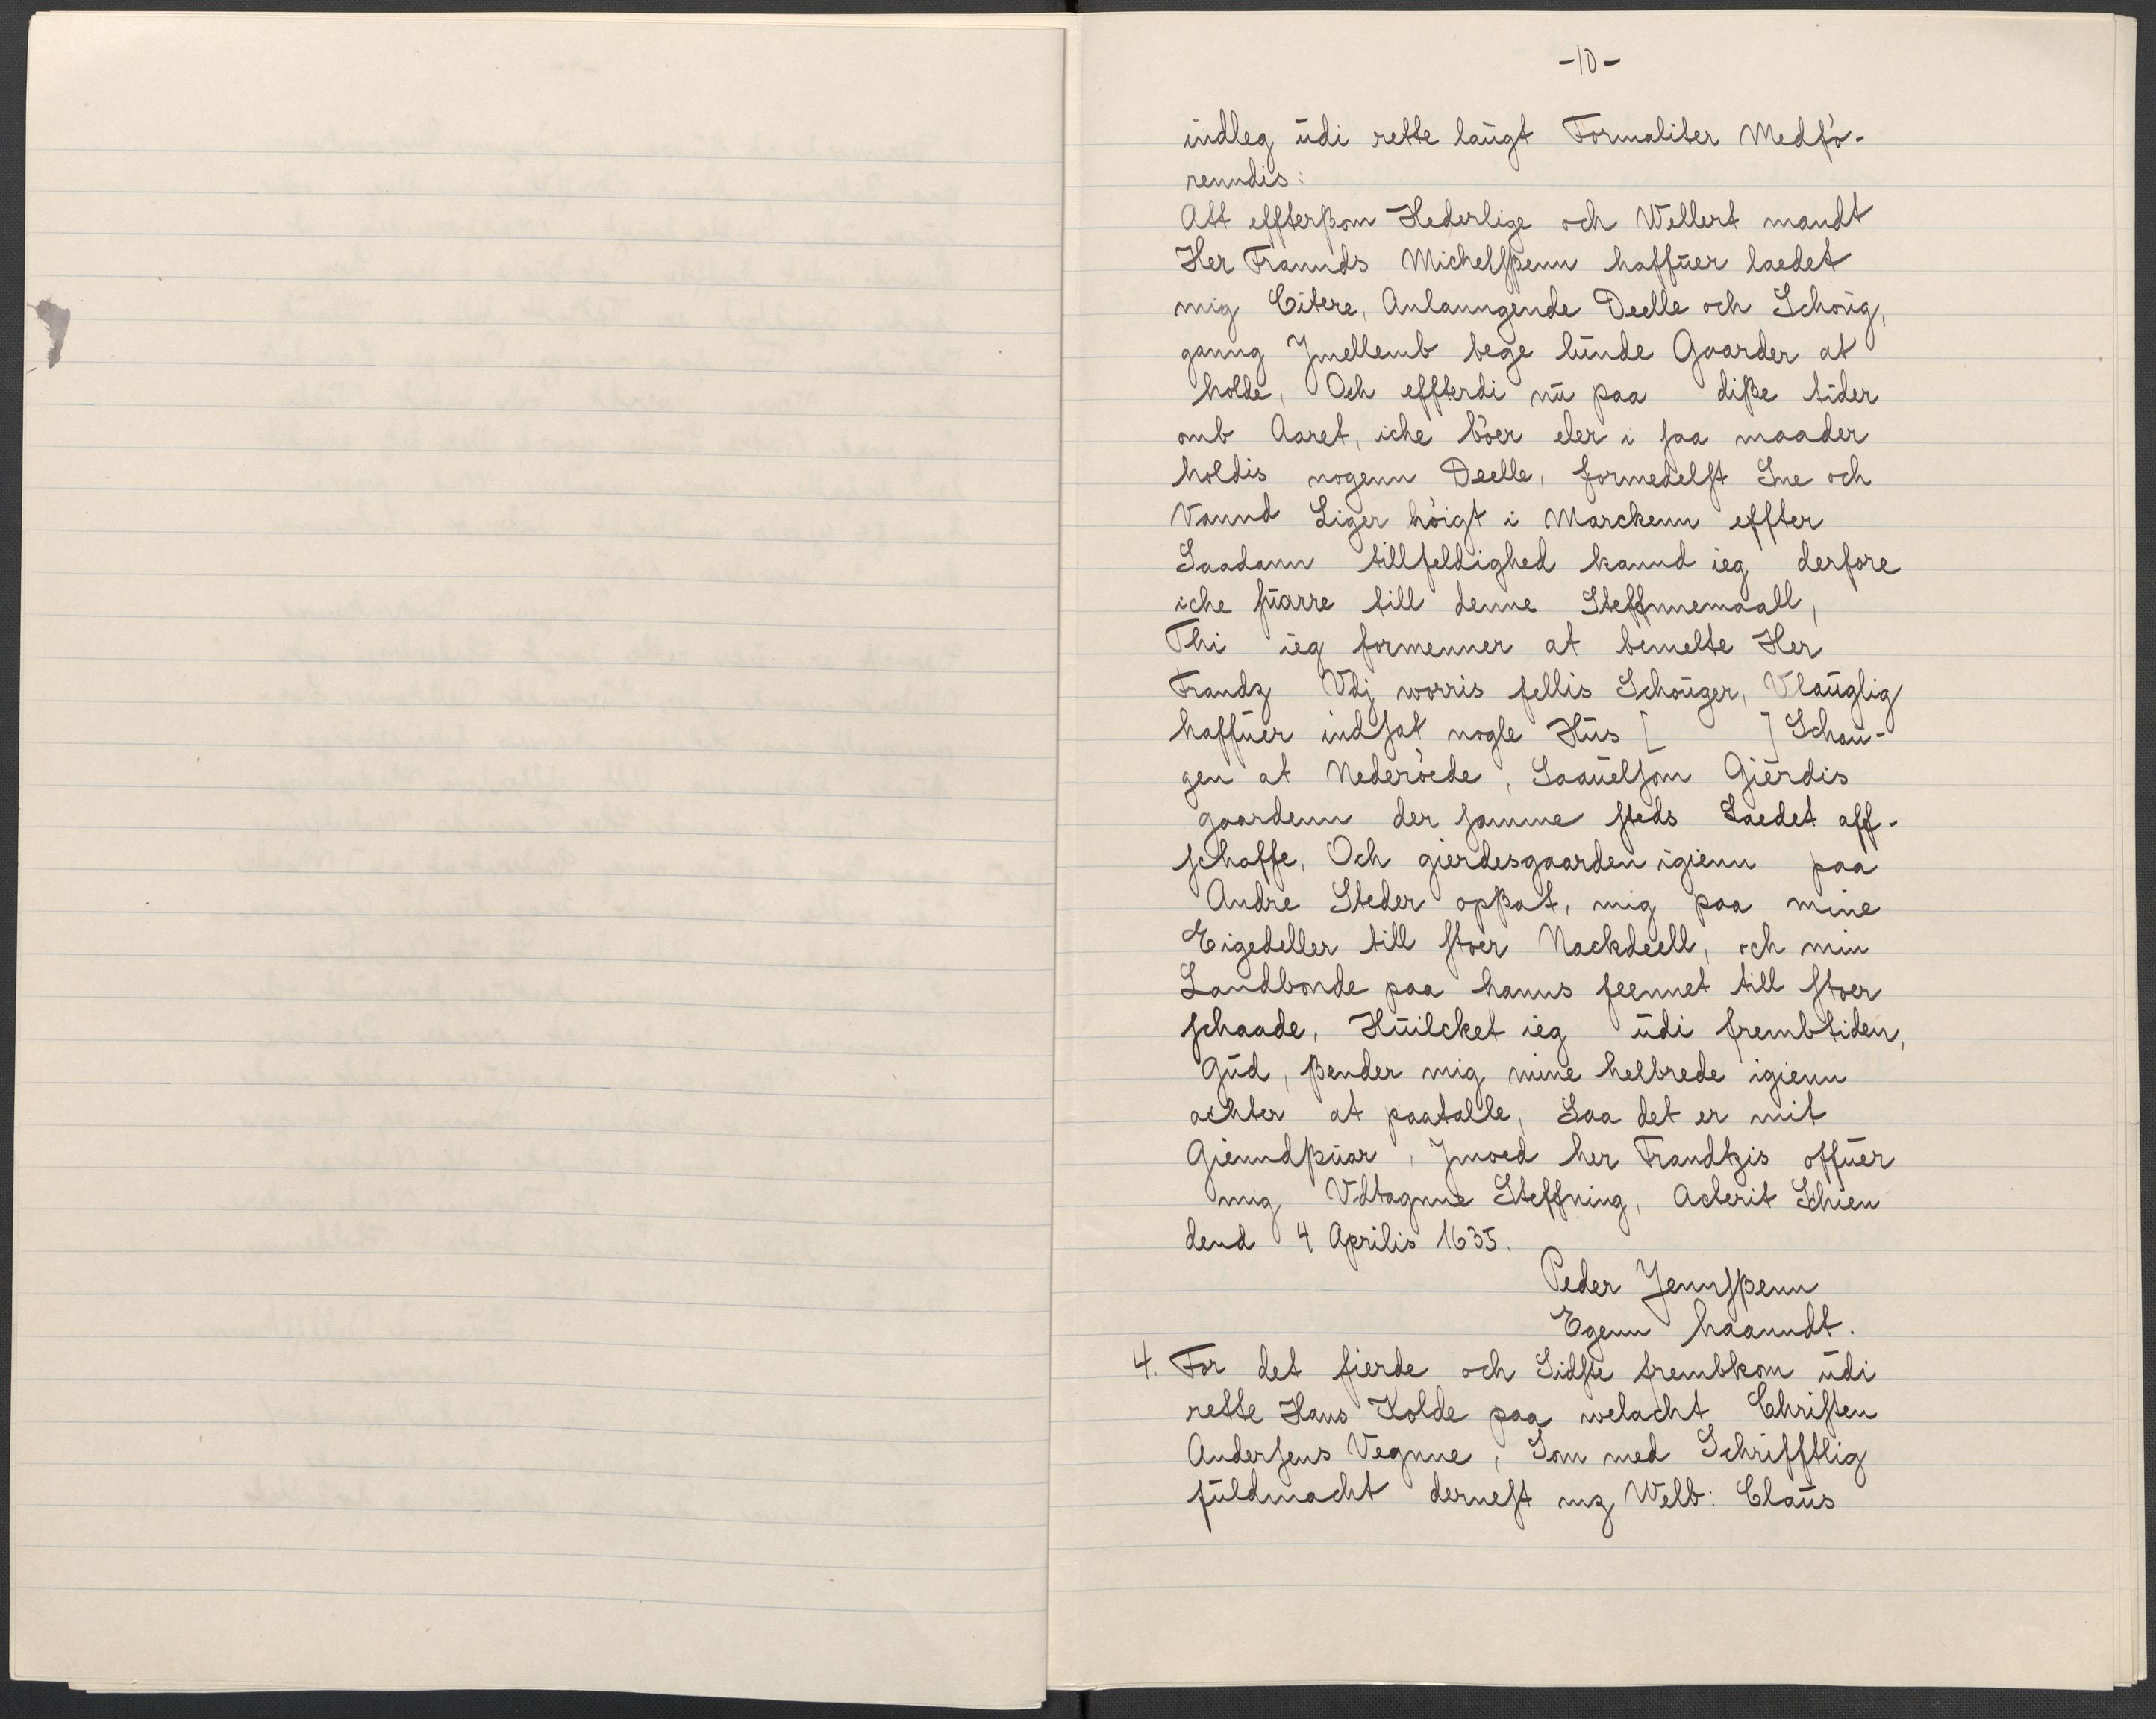 -10-
indleg udi rette laugt Formaliter Medfö-
renndis:
Att effterßom Hederlige och Wellert mandt
Her Frannds Michelsßenn haffuer laedet
mig Citere, Anlanngende Deelle och Schoug,
ganng Jmellemb bege lunde Gaarder at
holde, Och effterdi nu paa diße tider
omb Aaret, iche böer eler i saa maader
holdis nogenn Deelle, formedelst Sne och
Vannd Liger höigt i Marckenn effter
Saadann tillfeldighed kannd ieg derfore
iche suarre till denne Steffnnemaall,
Thi ieg formenner at bemelte Her
Frandz Vdj worris fellis Schouger, Vlauglig
haffuer indsat nogle Hus [ ] Schou-
gen at Nederöede, Saauelsom Gierdis
gaardenn der samme steds Laedet aff-
schaffe, Och gierdesgaarden igienn paa
Andre Steder opßat, mig paa mine
Eigedeller till stoer Nackdeell, och min
Landbonde paa hanns feennet till stoer
schaade, Huilcket ieg udi frembtiden,
Gud, ßender mig mine helbrede igienn
achter at paatalle, Saa det er mit
Gienndßuar, Jmoed her Frandtzis offuer
mig Vdtagnne Steffning, Acterit Schien
dend 4 Aprilis 1635.
Peder Jennsßenn
Egenn haanndt.
4. For det fierde och Sidste frembkom udi
rette Hans Kolde paa welacht Christen
Andersens Vegnne, Som med Schrifftlig
fuldmacht dernest mz Welb: Claus